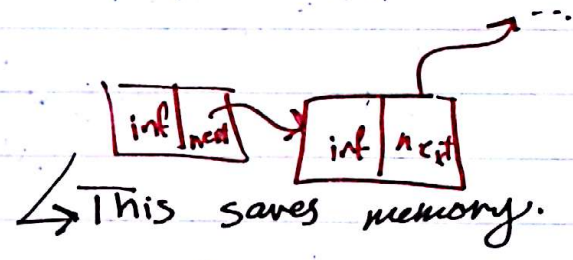 ...
inf next inf next
This saves memory.